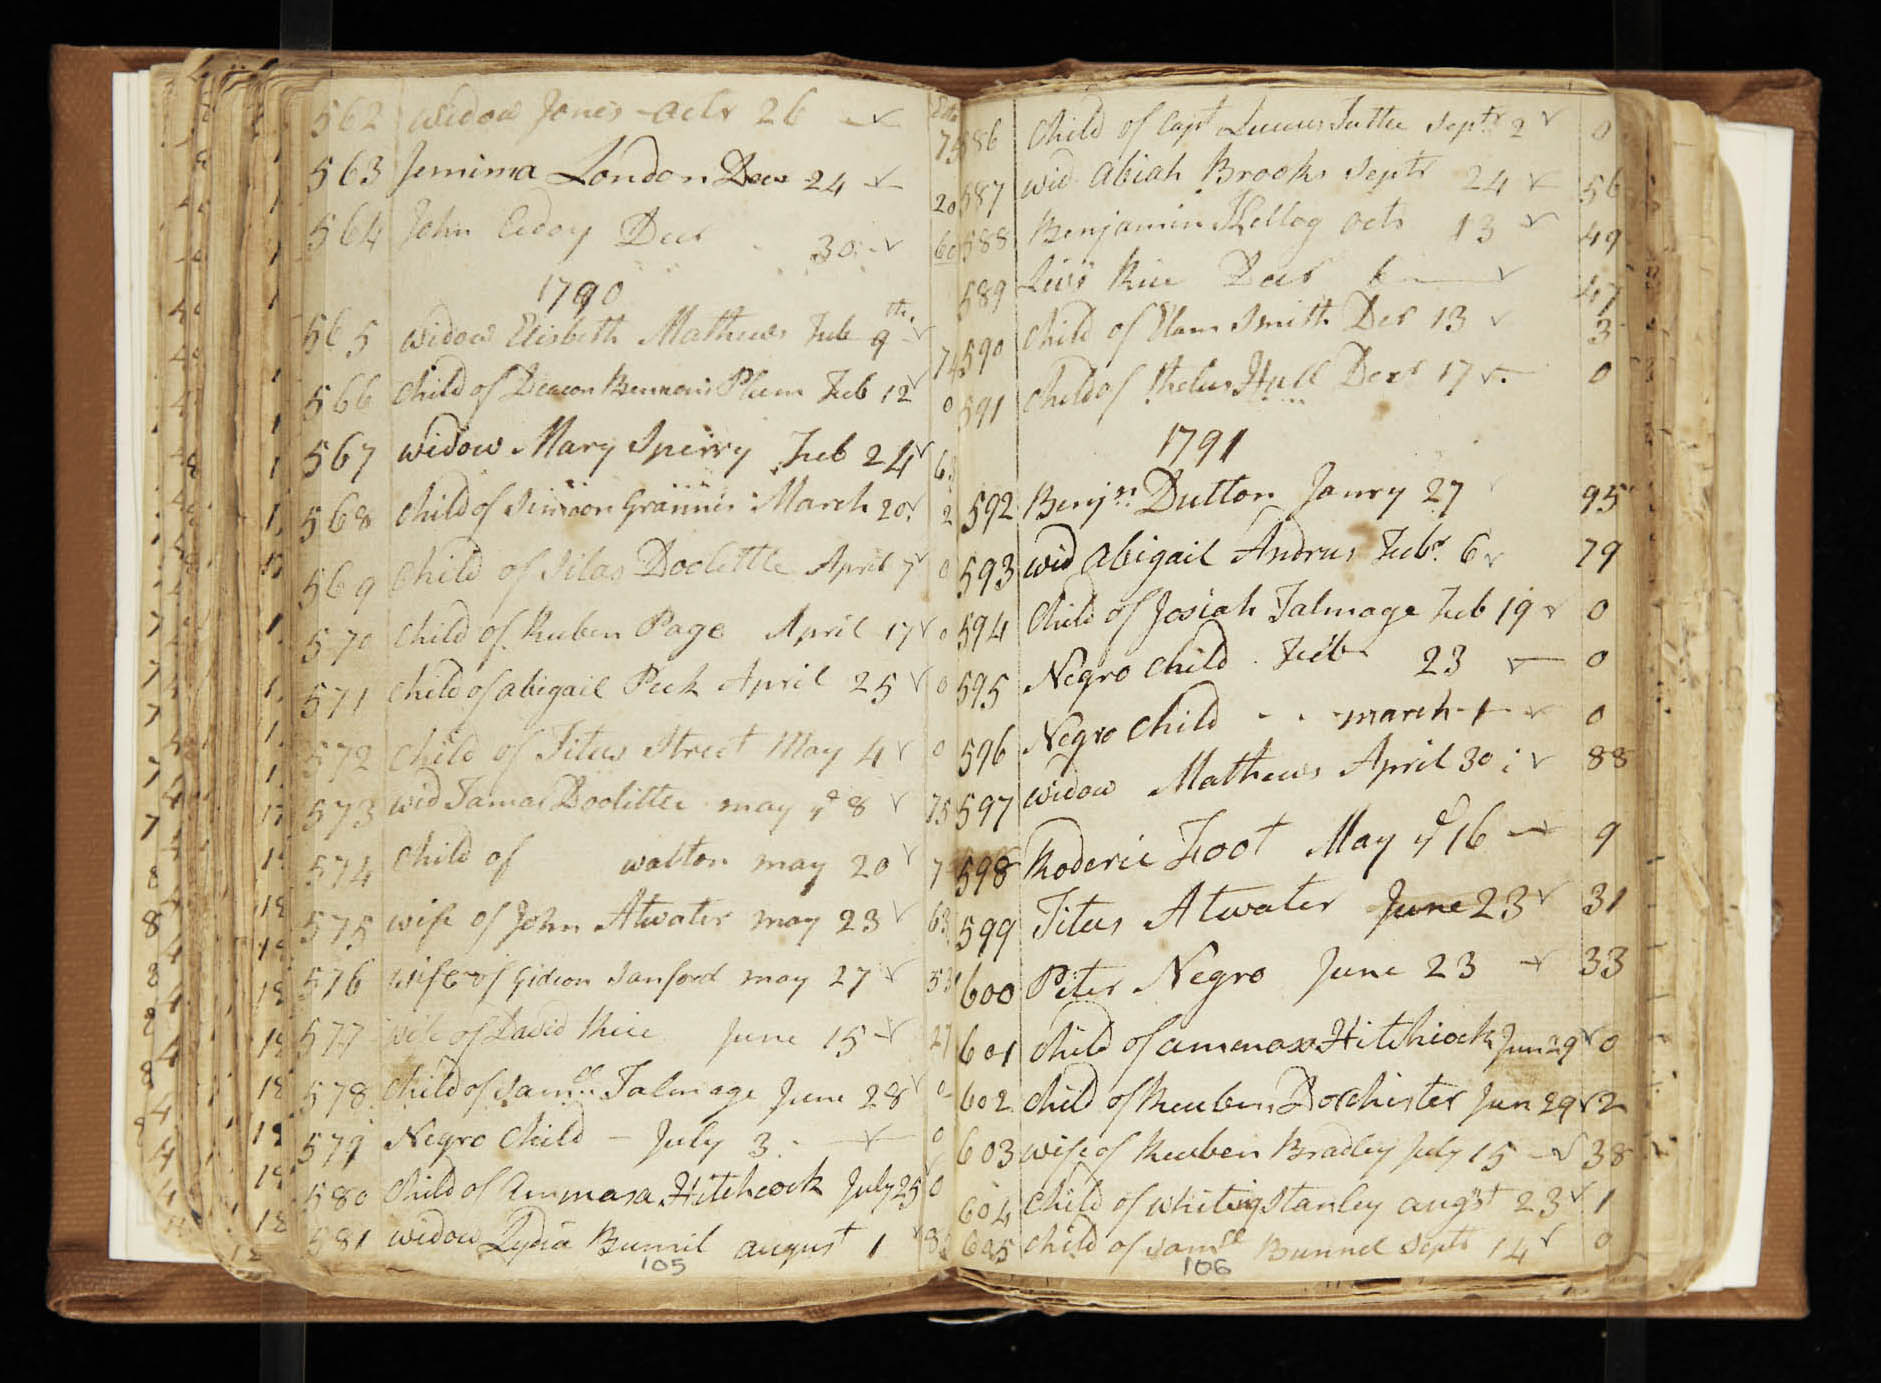 562 Widow Jones octr 26 75
563 Jemima London Decr 24 20
564 John Eddy Decr 30 60
1790
565 Widow Elisbeth Mathews Feb 9th 74
566 Child of Deacon Bennoni Plum Feb 12 0
567 Widow Mary Sperry Feb 24
568 Child of Simeon Grannis March 20 2
569 Child of Silas Doolittle April 7 0
570 Child of Ruben Page April 17 0
571 Child of Abigail Peck April 25 0
572 Child of Titus Street May 4 0
573 wid Tamar Doolittle may ye 8 75
574 Child of walton may 20 7
575 wife of John Atwater may 23 63
576 wife of Gideon Sanford may 27 53
577 wife of David Rice June 15 27
578 Child of Samll Talmage June 28 0
579 Negro Child – July 3 0
580 Child of Ammasa Hitchcock July 25 0
581 widow Lydia Bunnil august 1
105
586 Child of Capt Lucius Tuttle Septr 2 0
587 wid Abiah Brooks Septr 24 56
588 Benjamin Kellog octr 13 49
589 Levi Rice Decr 6 47
590 Child of Elam Smith Der 13 3
591 Child of Hull Decr 17 0
1791
592 Benjn Dutton Janry 27 95
593 wid Abigail Andrus Febr 6 79
594 Child of Josiah Talmage Feb 19 0
595 Negro Child Febr 23 0
596 Negro Child march 1 0
597 Widow Mathews April 30 88
598 Roderic Foot May ye 16 9
599 Titus Atwater June 23 31
600 Peter Negro June 23 33
601 Child of Hitchcock Jun 29 0
602 Child of Reuben Dorchister Jun 29 2
603 wife of Reuben Bradley July 15 38
604 Child of Whiting Stanley augst 23 1
605 Child of Samll Bunnel Septr 14 0
106